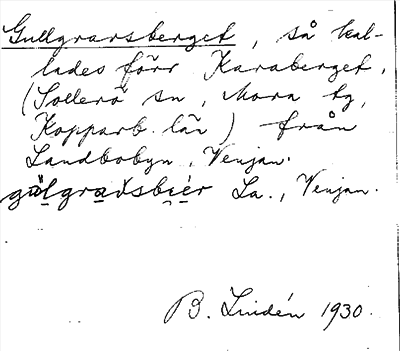 Gullgravsberget, så kal-
lades förr Karaberget,
(Sollerö sn, Mora tg,
Kopparb. län) från
Landbobyn, Venjan.
La., Venjan.
B. Lindén 1930.